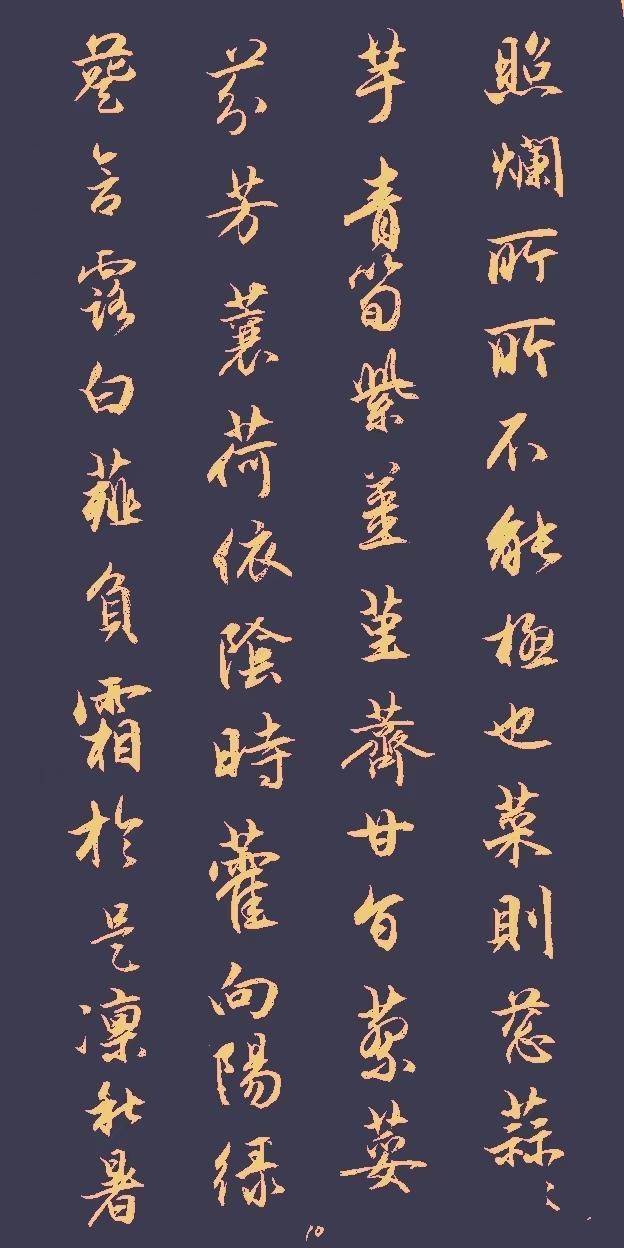 照爛所所不能極也菜則葱蒜
芋青筍紫薑堇薺甘旨蓼荽
芬芳蘘荷依陰時藿向陽緑
葵含露白薤負霜於是凜秋暑
10